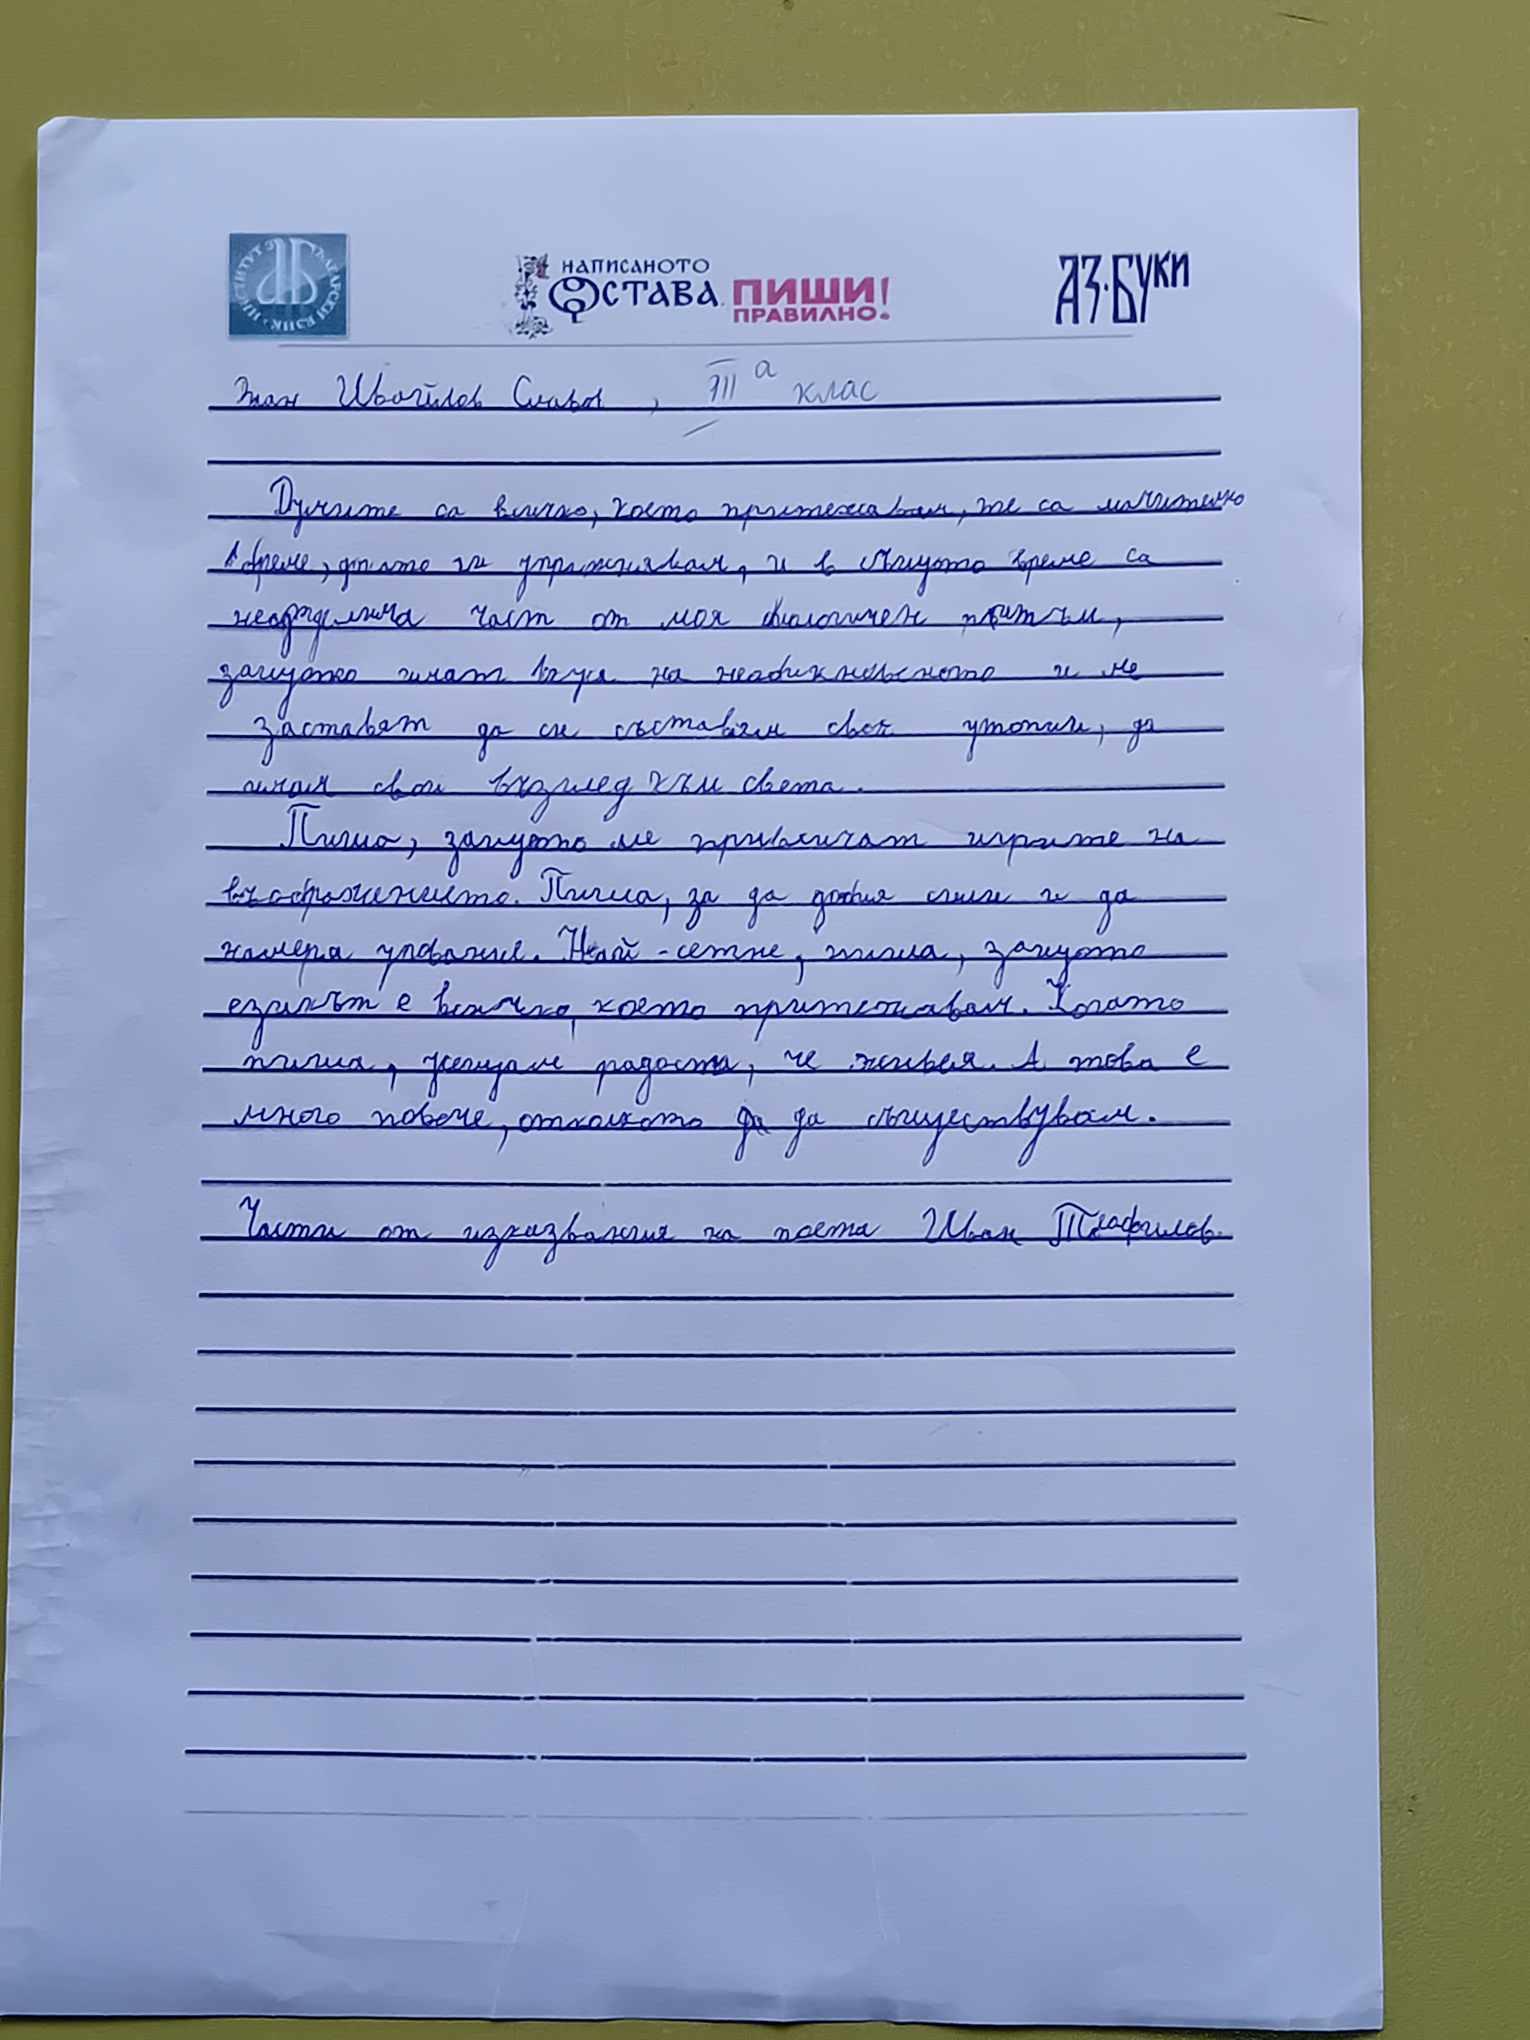 ИНСТИТУТ ЗА БЪЛГАРСКИ ЕЗИК
НАПИСАНОТО
ОСТАВА. ПИШИ
ПРАВИЛНО!
АЗ·БУКИ
Жан Ивайлов Славов, III а клас
Думите са всичко, което притежавам, те са мъчително
време, докато ги упражнявам, и в същото време са
неотделима част от моя биологичен ритъм,
защото имат вкуса на необикновеното и ме
заставят да си съставям своя утопии, да
имам свой възглед към света.
Пиша, защото ме привличат игрите на
въображението. Пиша, за да добия сили и да
намеря упование. Най-сетне, пиша, защото
езикът е всичко, което притежавам. Когато
пиша, усещам радостта, че живея. А това е
много повече, отколкото да да съществувам.
Части от изказвания на поета Иван Теофилов.